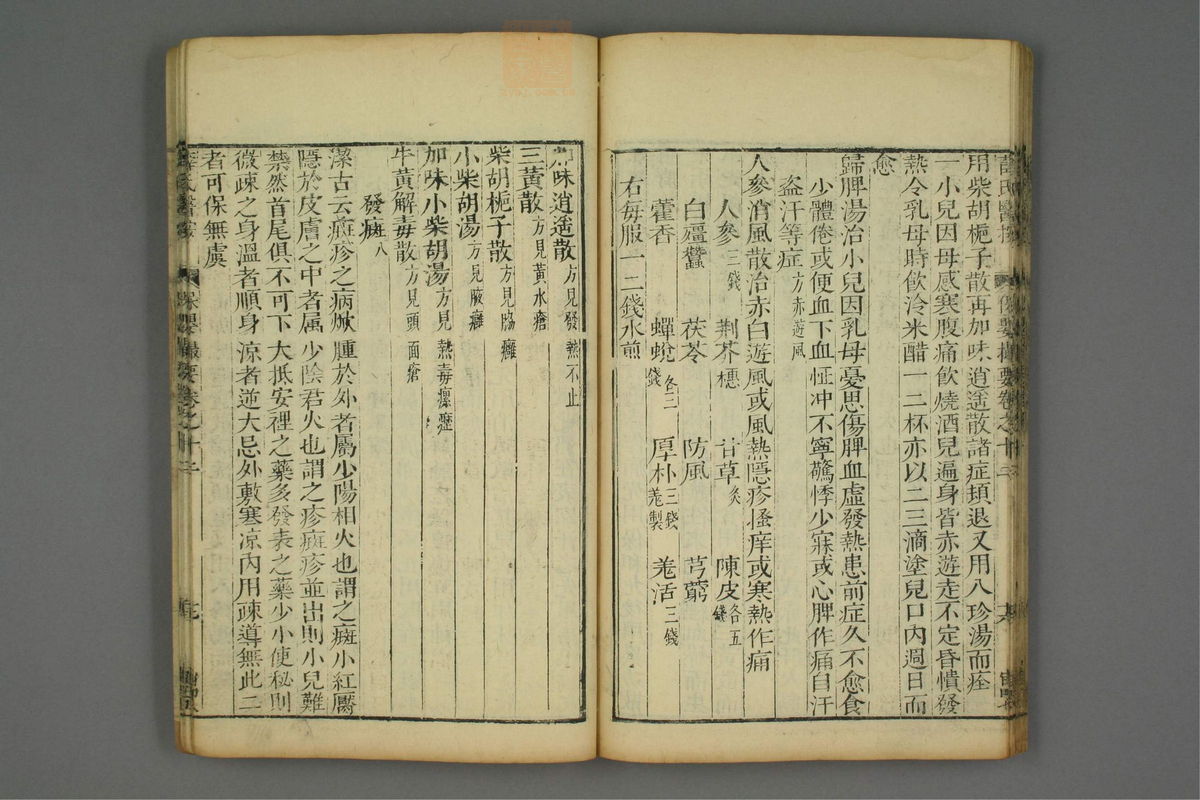 薛氏醫按 保嬰撮要卷之十三 六
用柴胡梔子散再加味逍遙散諸症頓退又用八珍湯而痊
一小兒因母感寒腹痛飲燒酒兒遍身皆赤遊走不定昏憒發
熱令乳母時飲冷米醋一二杯亦以二三滴塗兒口內過日而
愈
歸脾湯治小兒因乳母憂思傷脾血虛發熱患前症久不愈食
少體倦或便血下血怔冲不寧驚悸少寐或心脾作痛自汗
盜汗等症方赤遊風
人參消風散治赤白遊風或風熱隱疹搔痒或寒熱作痛
人參三錢 荆芥穗 甘草炙 陳皮各五錢
白殭蠶 茯苓 防風 芎藭
藿香 蟬蛻各二錢 厚朴三錢羗製 羌活三錢
右每服一二錢水煎
加味逍遙散方見發熱不止
三黃散方見黃水瘡
柴胡梔子散方見脇癰
小柴胡湯方見腋癰
加味小柴胡湯方見熱毒瘰癧
牛黃解毒散方見頭面瘡
發癍八
潔古云癍疹之病焮腫於外者屬少陽相火也謂之癍小紅靨
隱於皮膚之中者属少陰君火也謂之疹癍疹並出則小兒難
禁然首尾俱不可下大抵安裡之藥多發表之藥少小便秘則
微疎之身溫者順身凉者逆大忌外敷寒凉內用疎導無此二
者可保無虞
薛氏醫按 保嬰撮要卷之十三 七